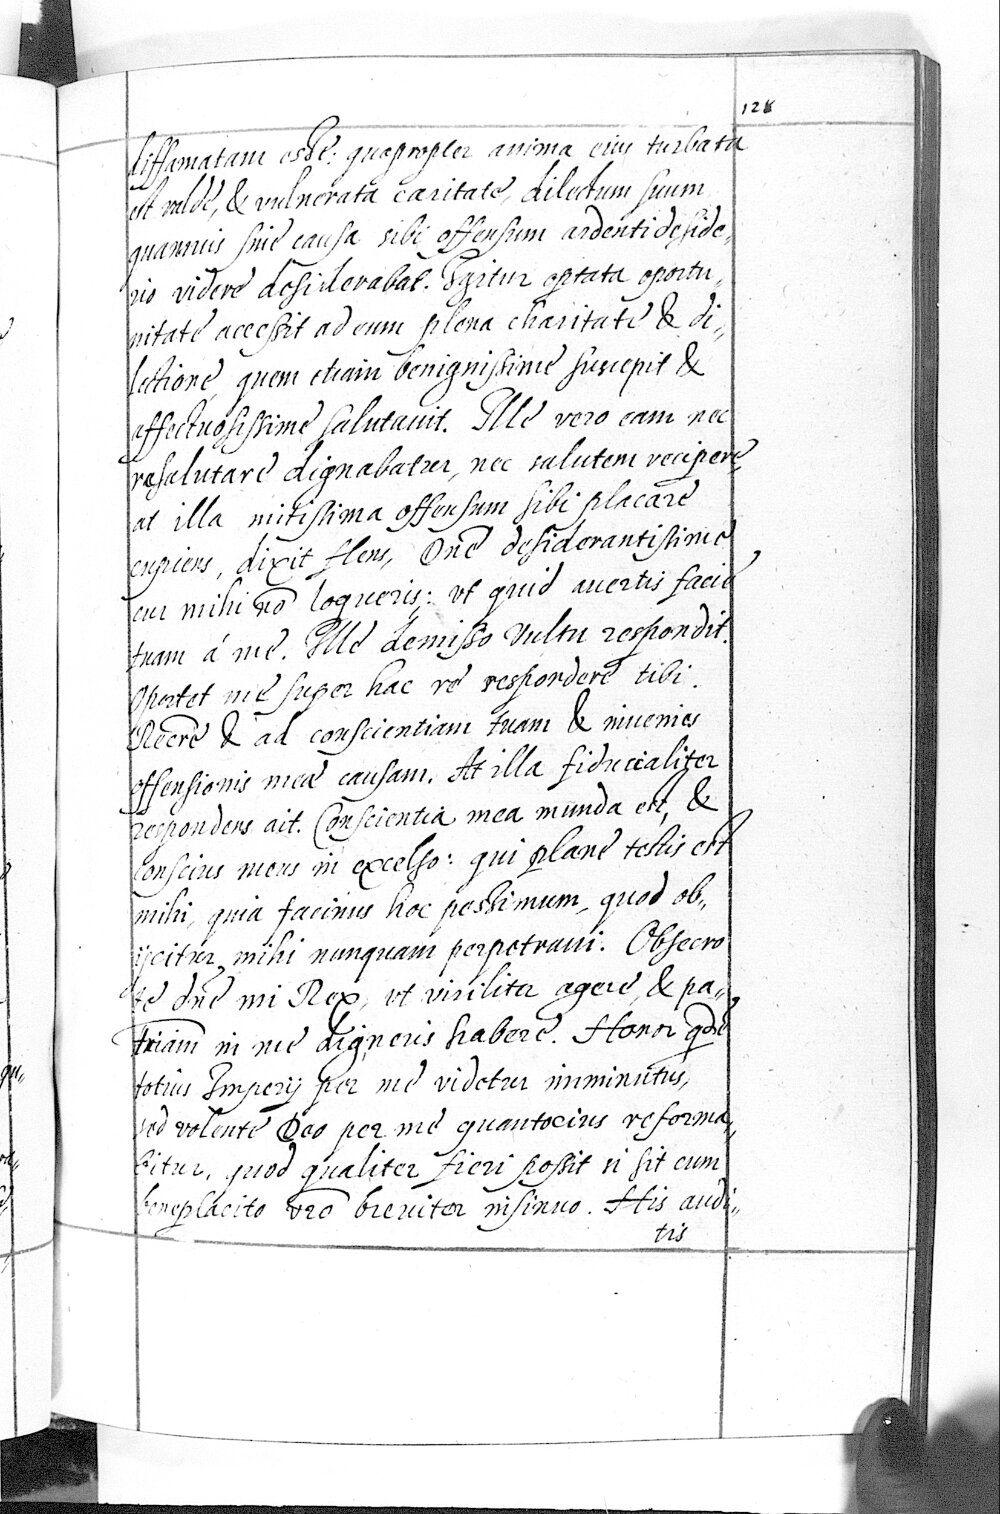 128
diffamatam esse: quapropter anima eius turbata
est valde, & vulnerata caritate, dilectum suum
quamuis sine causa sibi offensum ardenti deside„
rio videre desiderabat. Igitur optata oportu„
nitate accessit ad eum plena charitate & di„
lectione, quem etiam benignissime suscepit &
affectuosissime salutauit. Ille vero eam nec
resalutare dignabatur, nec salutem recipere,
at illa mitissima offensum sibi placare
cupiens, dixit flens, Dnē desiderantissime
cur mihi nō loqueris: vt quid auertis faciē
tuam á me. Ille demisso vultu respondit.
Oportet me super hac re respondere tibi.
Recrē & ad conscientiam tuam & inuenies
offensionis meæ causam. At illa fiducialiter
respondens ait. Conscientia mea munda est, &
conscius meus in excelso: qui plane testis est
mihi, quia facinus hoc pessimum, quod ob„
ijcitur mihi nunquam perpetraui. Obsecro
te dnē mi Rex, vt viriliter agere, & pa„
triam in me digneris habere. Honor qdē
totius Imperij per me videtur imminutus,
sed volente Deo per me quantocius reforma„
bitur, quod qualiter fieri possit si sit cum
beneplacito vrō breuiter insinuo. His audi„
tis